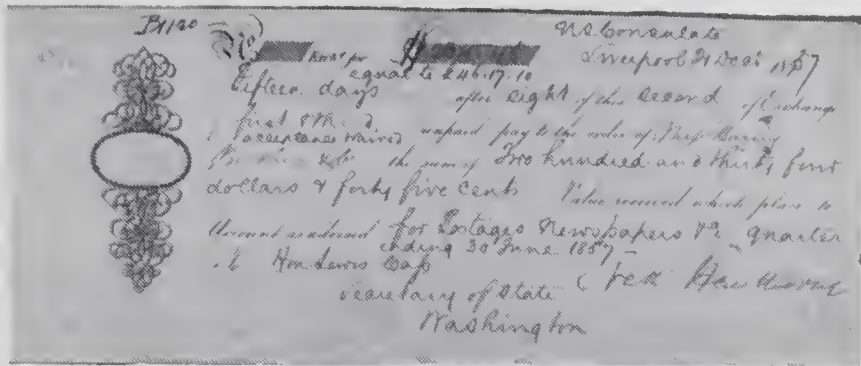 B1120 US Consulate
No Liverpool 21 Decr 1857
equal to £46.17.10
Fifteen days after sight of this Second of Exchange
first & third
acceptance waived unpaid pay to the order of Mess Baring
the sum of Two hundred and thirty four
dollars & forty five cents Value received which place to
Account as advised for Postages Newspapers &c quarter
ending 30 June 1857
To Hon Lewis Cass
Secretary of State
Washington